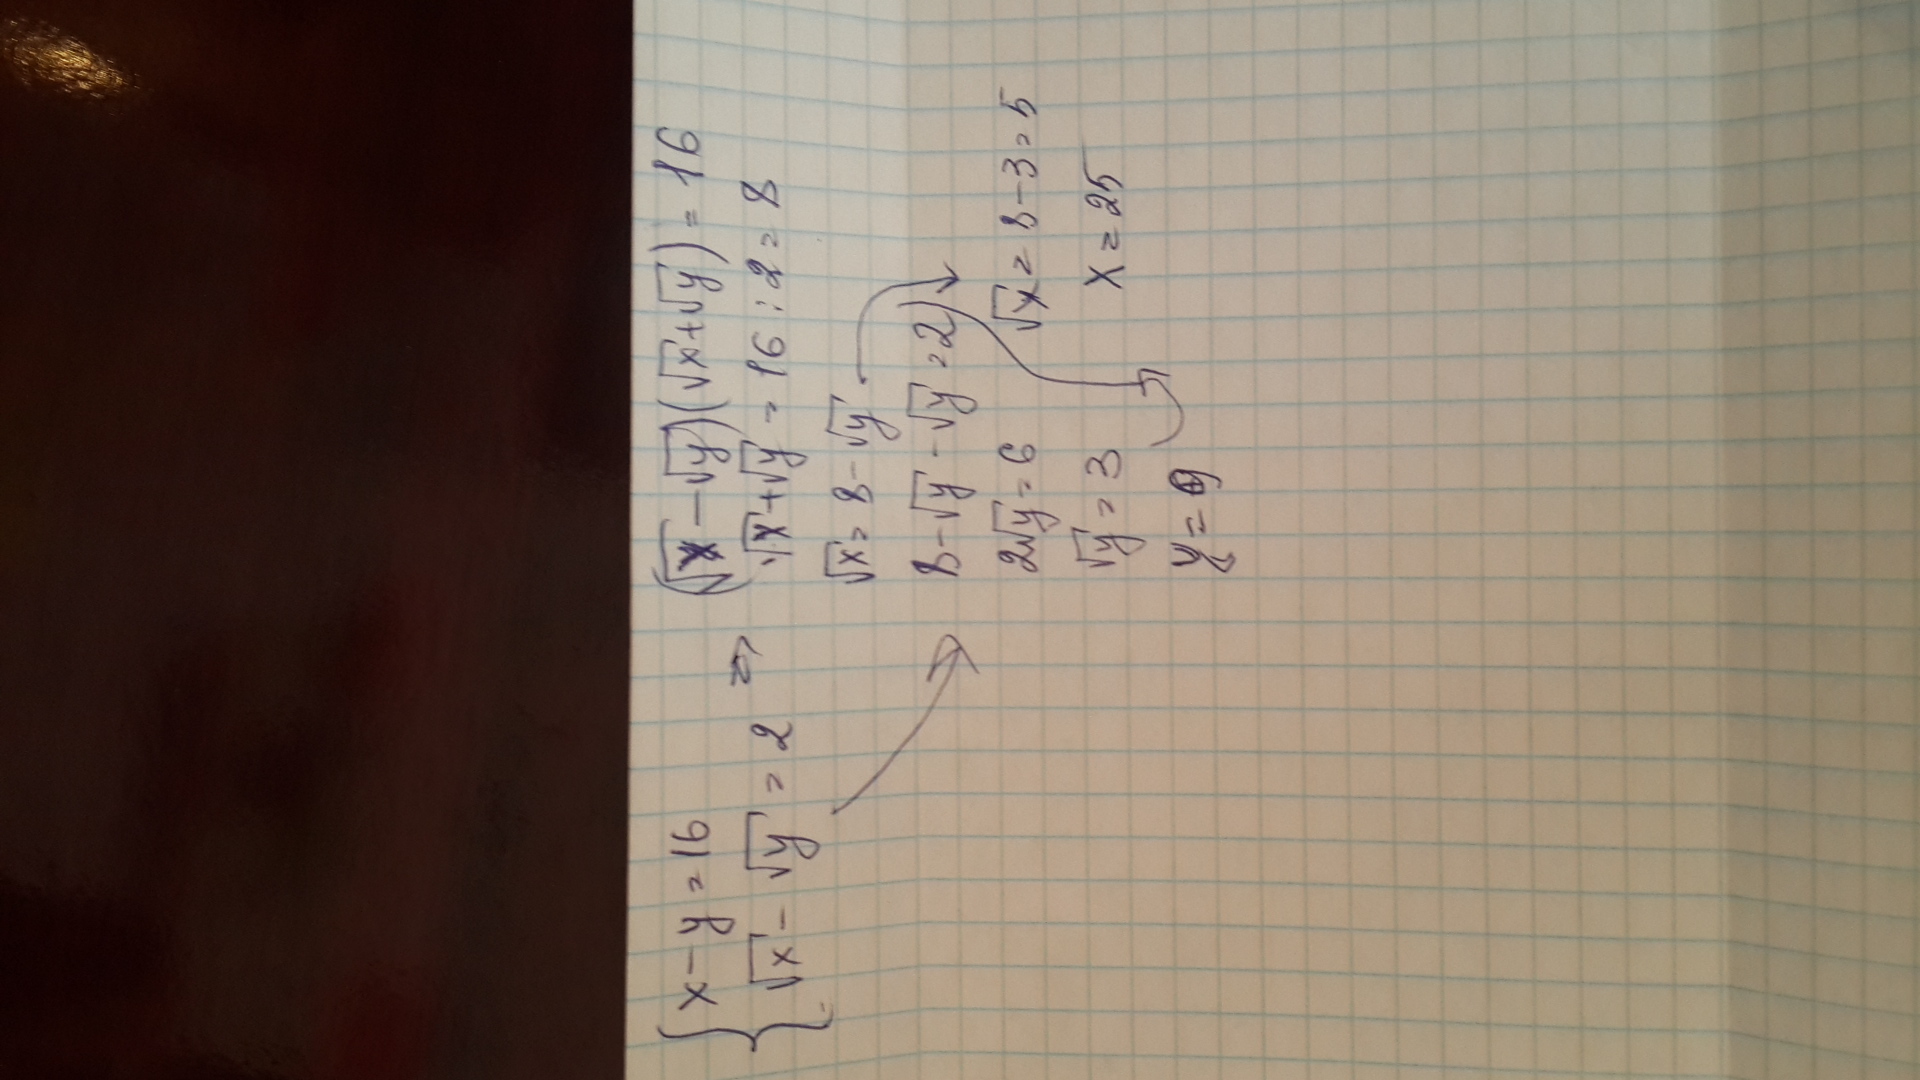 { x - y = 16
√x - √y = 2 ⇒
(√x - √y)(√x + √y) = 16
√x + √y = 16 : 2 = 8
√x = 8 - √y
8 - √y - √y = 2
2√y = 6
√y = 3
y = 9
√x = 8 - 3 = 5
x = 25